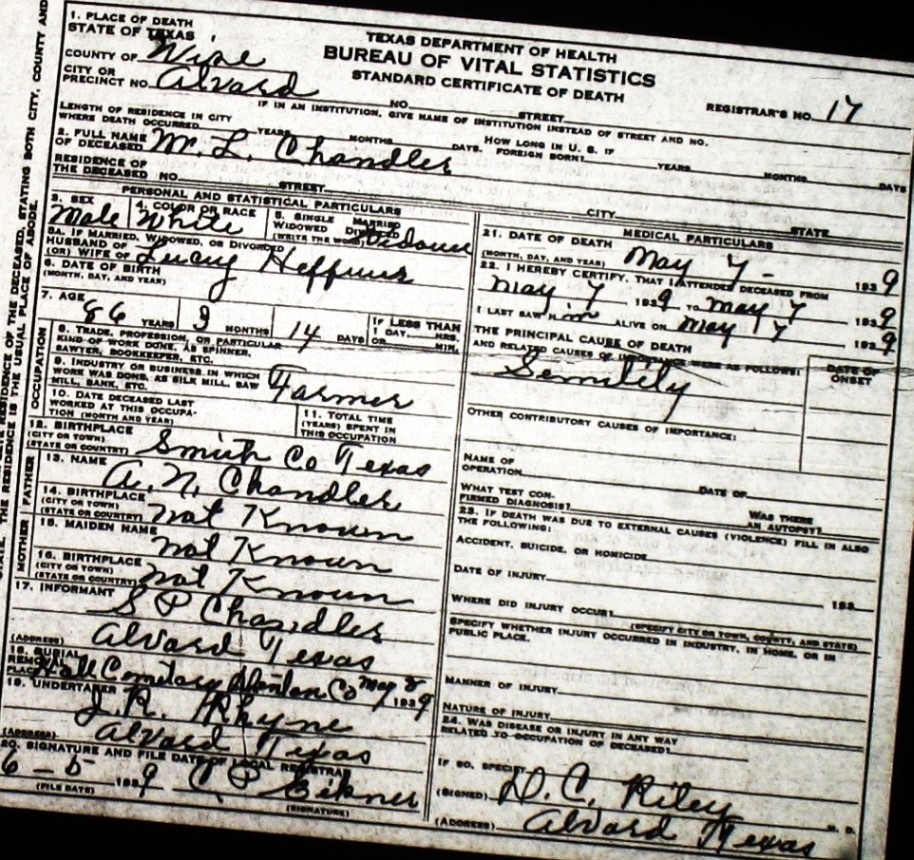 TEXAS DEPARTMENT OF HEALTH
BUREAU OF VITAL STATISTICS
STANDARD CERTIFICATE OF DEATH
1. PLACE OF DEATH
STATE OF TEXAS
COUNTY OF Wise
CITY OR
PRECINCT NO. Alvard
NO. STREET
REGISTRAR'S NO. 17
IF IN AN INSTITUTION, GIVE NAME OF INSTITUTION INSTEAD OF STREET AND NO.
LENGTH OF RESIDENCE IN CITY
WHERE DEATH OCCURRED YEARS MONTHS DAYS
HOW LONG IN U. S. IF
FOREIGN BORN? YEARS MONTHS DAYS
2. FULL NAME
OF DECEASED L. Chandler
RESIDENCE OF
THE DECEASED NO. STREET CITY STATE
PERSONAL AND STATISTICAL PARTICULARS
3. SEX Male
4. COLOR OR RACE White
5. SINGLE MARRIED
WIDOWED DIVORCED
5A. IF MARRIED, WIDOWED, OR DIVORCED
HUSBAND OF
(OR) WIFE OF
6. DATE OF BIRTH
(MONTH, DAY, AND YEAR)
7. AGE
86 YEARS MONTHS 14 DAYS
IF LESS THAN
1 DAY, HRS.
OR MIN.
OCCUPATION
8. TRADE, PROFESSION, OR PARTICULAR
KIND OF WORK DONE, AS SPINNER,
SAWYER, BOOKKEEPER, ETC.
9. INDUSTRY OR BUSINESS IN WHICH
WORK WAS DONE, AS SILK MILL, SAW
MILL, BANK, ETC. Farmer
10. DATE DECEASED LAST
WORKED AT THIS OCCUPA-
TION (MONTH AND YEAR)
11. TOTAL TIME
(YEARS) SPENT IN
THIS OCCUPATION
12. BIRTHPLACE
(CITY OR TOWN)
(STATE OR COUNTRY) Smith Co Texas
FATHER
13. NAME
A. N. Chandler
14. BIRTHPLACE
(CITY OR TOWN)
(STATE OR COUNTRY) not Known
MOTHER
15. MAIDEN NAME
not Known
16. BIRTHPLACE
(CITY OR TOWN)
(STATE OR COUNTRY) not Known
17. INFORMANT
S P Chandler
(ADDRESS) Alvard Texas
18. BURIAL
May 193 9
19. UNDERTAKER
J. R. Rhyne
(ADDRESS) Alvard Texas
20. SIGNATURE AND FILE DATE OF LOCAL REGISTRAR
6 - 5 193 9
(FILE DATE) (SIGNATURE)
MEDICAL PARTICULARS
21. DATE OF DEATH
(MONTH, DAY, AND YEAR) May 7 - 193 9
22. I HEREBY CERTIFY, THAT I ATTENDED DECEASED FROM
May 7 193 9 TO May 7 193 9
I LAST SAW H im ALIVE ON May 7 193 9
THE PRINCIPAL CAUSE OF DEATH
AND RELATED CAUSES OF IMPORTANCE WERE AS FOLLOWS:
DATE OF
ONSET
OTHER CONTRIBUTORY CAUSES OF IMPORTANCE:
NAME OF
OPERATION DATE OF
WHAT TEST CON-
FIRMED DIAGNOSIS?
WAS THERE
AN AUTOPSY?
23. IF DEATH WAS DUE TO EXTERNAL CAUSES (VIOLENCE) FILL IN ALSO
THE FOLLOWING:
ACCIDENT, SUICIDE, OR HOMICIDE
DATE OF INJURY 193
WHERE DID INJURY OCCUR?
(SPECIFY CITY OR TOWN, COUNTY, AND STATE)
SPECIFY WHETHER INJURY OCCURRED IN INDUSTRY, IN HOME, OR IN
PUBLIC PLACE.
MANNER OF INJURY
NATURE OF INJURY
24. WAS DISEASE OR INJURY IN ANY WAY
RELATED TO OCCUPATION OF DECEASED?
IF SO, SPECIFY
(SIGNED) D. C. Riley M. D.
(ADDRESS) Alvard Texas